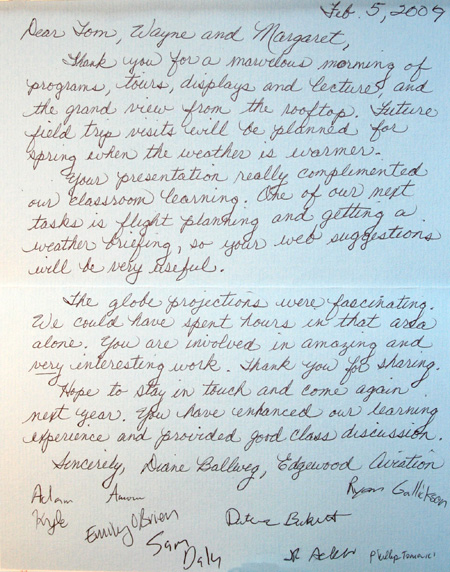 Feb. 5, 2009
Dear Tom, Wayne and Margaret,
Thank you for a marvelous morning of
programs, tours, displays and lectures, and
the grand view from the rooftop. Future
field trip visits will be planned for
spring when the weather is warmer.
Your presentation really complimented
our classroom learning. One of our next
tasks is flight planning and getting a
weather briefing, so your web suggestions
will be very useful.
The globe projections were fascinating.
We could have spent hours in that area
alone. You are involved in amazing and
very interesting work. Thank you for sharing.
Hope to stay in touch and come again
next year. You have enhanced our learning
experience and provided good class discussion.
Sincerely, Diane Ballweg, Edgewood Aviation
Adam
Ryan
Kyle
Emily O'Brien
Sam
Daly
Phillip